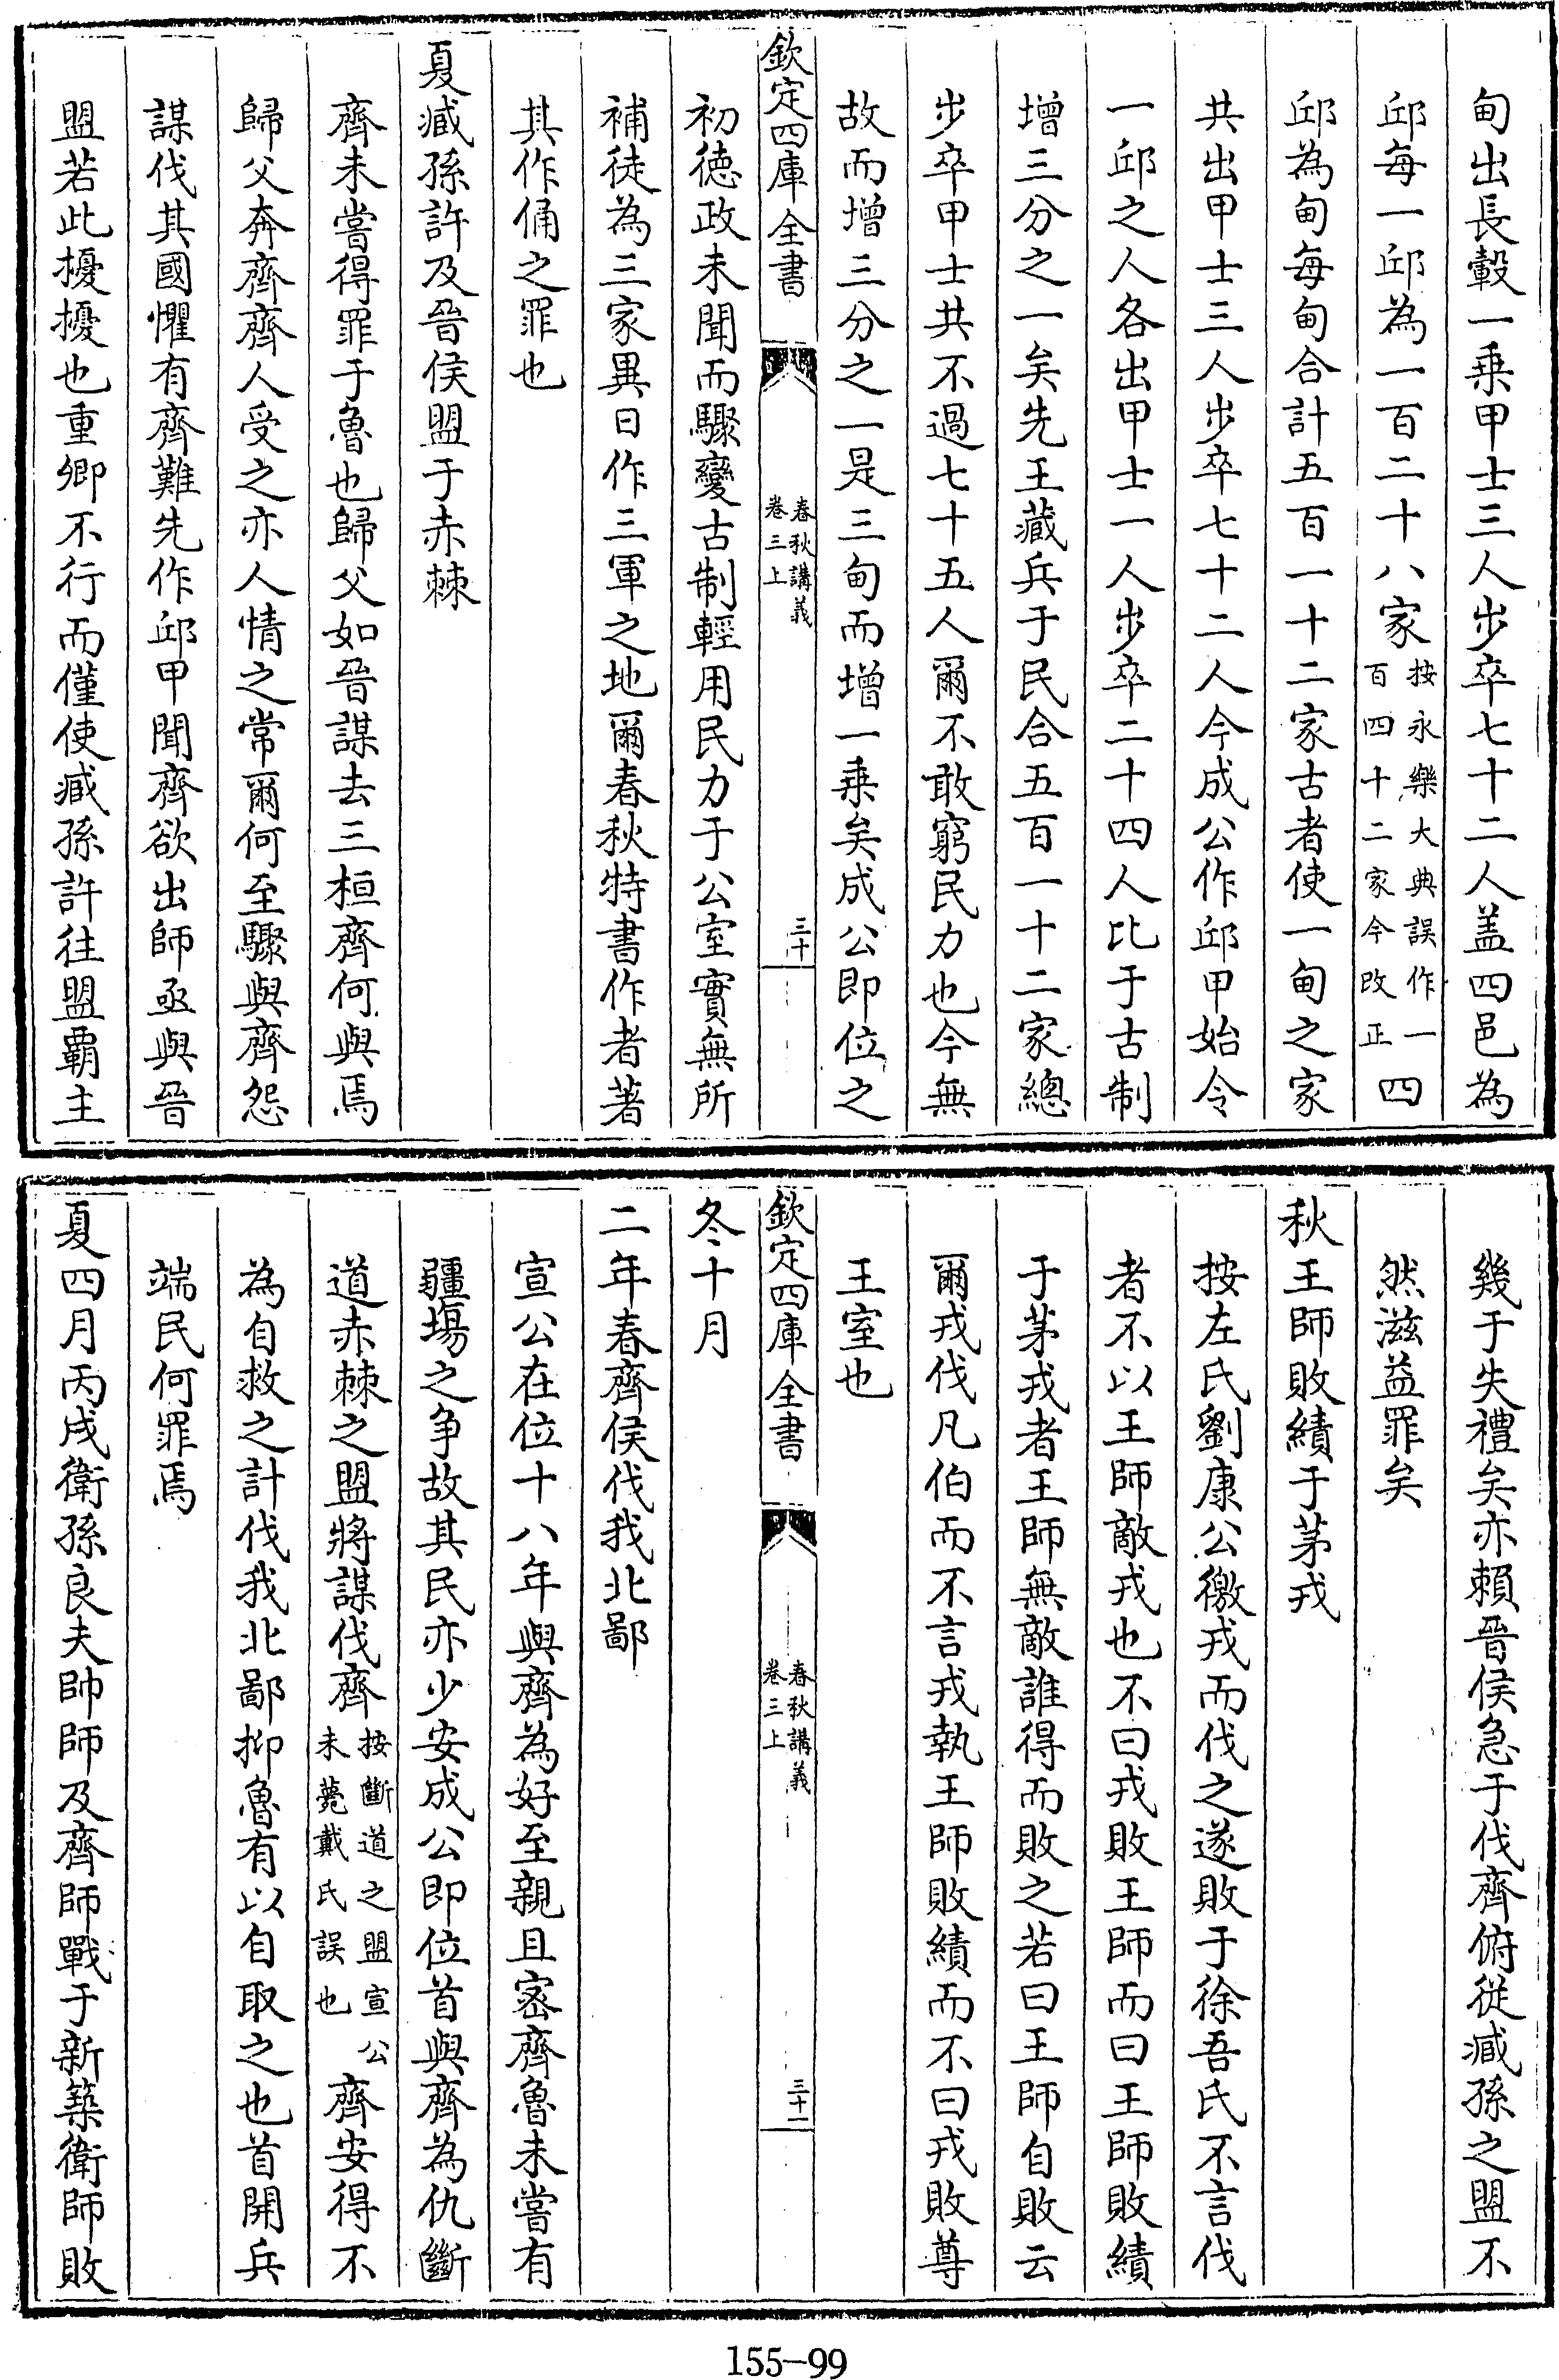 甸出長轂一乗甲士三人步卒七十二人盖四邑為
邱每一邱為一百二十八家按永樂大典誤作一百四十二家今改正四
邱為甸每甸合計五百一十二家古者使一甸之家
共出甲士三人步卒七十二人今成公作邱甲始令
一邱之人各出甲士一人步卒二十四人比于古制
增三分之一矣先王藏兵于民合五百一十二家總
步卒甲士共不過七十五人爾不敢窮民力也今無
故而增三分之一是三甸而增一乗矣成公即位之
欽定四庫全書
春秋講義
卷三上
三十
初德政未聞而驟變古制輕用民力于公室實無所
補徒為三家異日作三軍之地爾春秋特書作者著
其作俑之罪也
夏臧孫許及晉侯盟于赤棘
齊未嘗得罪于魯也歸父如晉謀去三桓齊何與焉
歸父奔齊齊人受之亦人情之常爾何至驟與齊怨
謀伐其國懼有齊難先作邱甲聞齊欲出師亟與晉
盟若此擾擾也重卿不行而僅使臧孫許往盟覇主
幾于失禮矣亦賴晉侯急于伐齊俯從臧孫之盟不
然滋益罪矣
秋王師敗績于茅戎
按左氏劉康公徼戎而伐之遂敗于徐吾氏不言伐
者不以王師敵戎也不曰戎敗王師而曰王師敗績
于茅戎者王師無敵誰得而敗之若曰王師自敗云
爾戎伐凡伯而不言戎執王師敗績而不曰戎敗尊
王室也
欽定四庫全書
春秋講義
卷三上
三十一
冬十月
二年春齊侯伐我北鄙
宣公在位十八年與齊為好至親且宻齊魯未嘗有
疆埸之争故其民亦少安成公即位首與齊為仇斷
道赤棘之盟將謀伐齊按斷道之盟宣公未薨戴氏誤也齊安得不
為自救之計伐我北鄙抑魯有以自取之也首開兵
端民何罪焉
夏四月丙戌衛孫良夫帥師及齊師戰于新築衛師敗
155-99